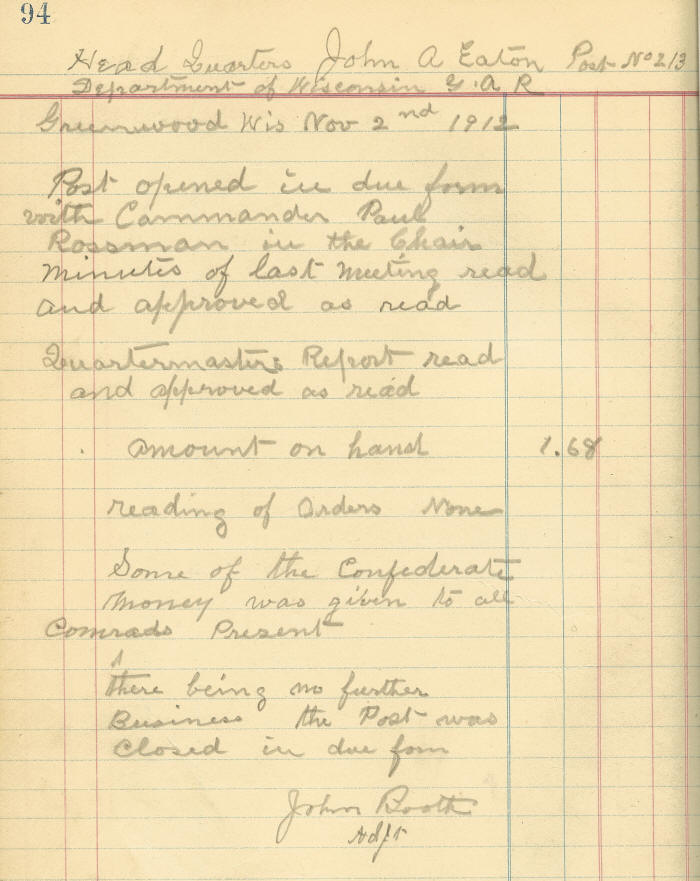 94
Head Quarters John A Eaton Post No 213
Department of Wisconsin G.A R
Greenwood Wis Nov 2nd 1912
Post opened in due form
with Commander Paul
Rossman in the Chair
minutes of last meeting read
and approved as read
Quartermasters Report read
and approved as read
amount on hand 1.68
reading of Orders None
Some of the Confederate
money was given to all
Comrads Present
there being no further
Business the Post was
Closed in due form
John Booth
Adjt